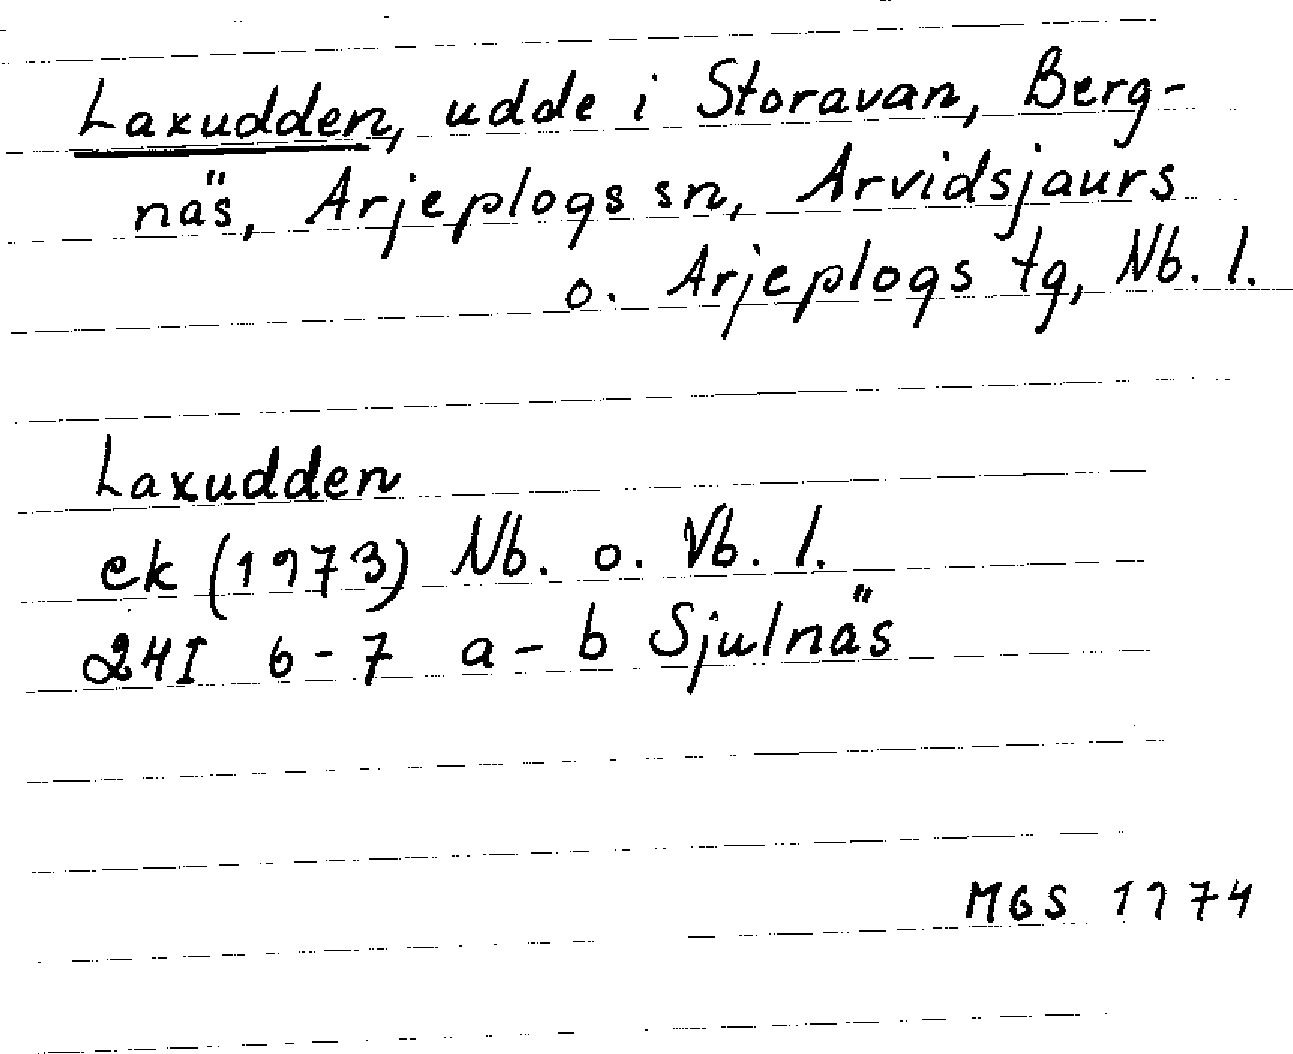 Laxudden, udde i Storavan, Berg-
näs, Arjeplogs sn, Arvidsjaurs
o. Arjeplogs tg, Nb. l.
Laxudden
ek (1973) Nb. o. Vb. l.
24I 6-7 a-b Sjulnäs
MGS 1974